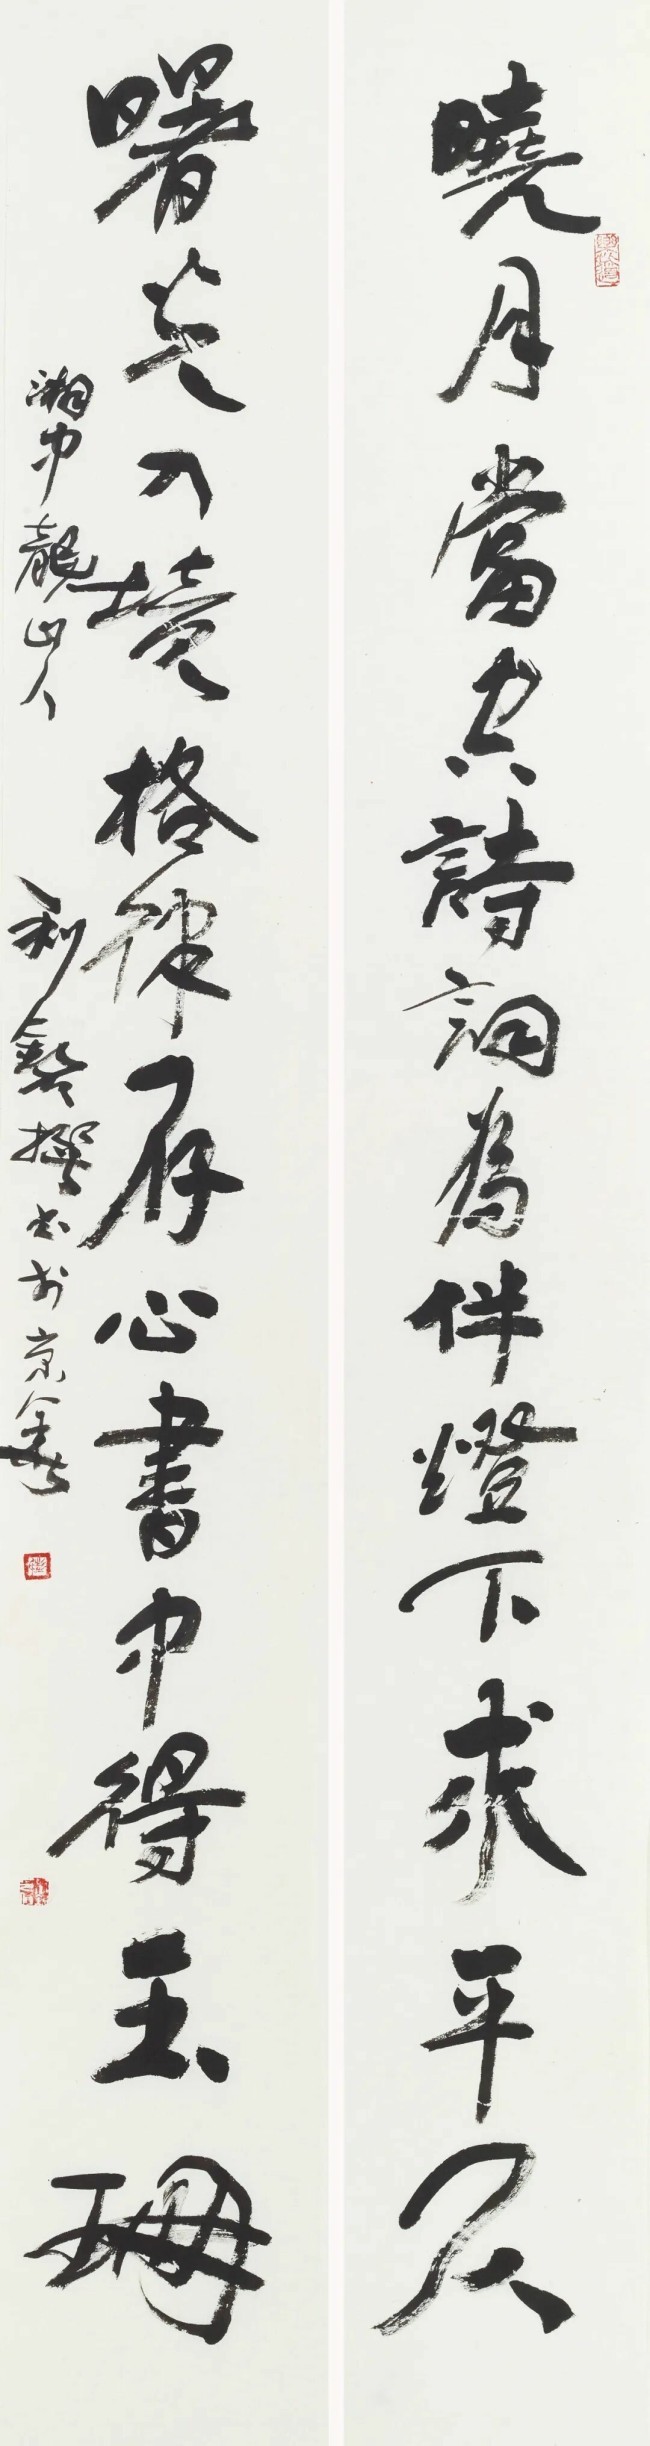 曉月當空詩詞為伴燈下求平仄
曙光入境格律存心書中得玉珊
湘中龍山人
利撰书於京